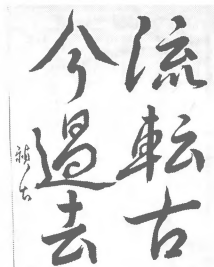 流転古
今過去